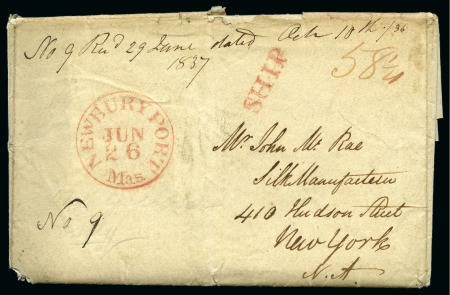 No 9 Recd 29 June dated Octr 10th /36
1837
SHIP
58½
NEWBURYPORT
JUN
26
Mas.
Mr. John Mc Rae
Silk Manufacturer
410 Hudson Street
New York
N. A.
No 9